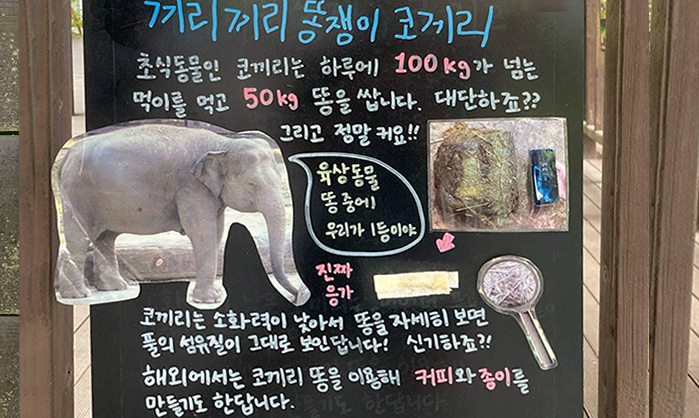 끼리끼리 똥쟁이 코끼리
초식동물인 코끼리는 하루에 100kg가 넘는
먹이를 먹고 50kg 똥을 쌉니다. 대단하죠??
그리고 정말 커요!!
육상동물
똥 중에
우리가 1등이야
진짜
응가
코끼리는 소화력이 낮아서 똥을 자세히 보면
풀의 섬유질이 그대로 보인답니다! 신기하죠?!
해외에서는 코끼리 똥을 이용해 커피와 종이를
만들기도 한답니다.